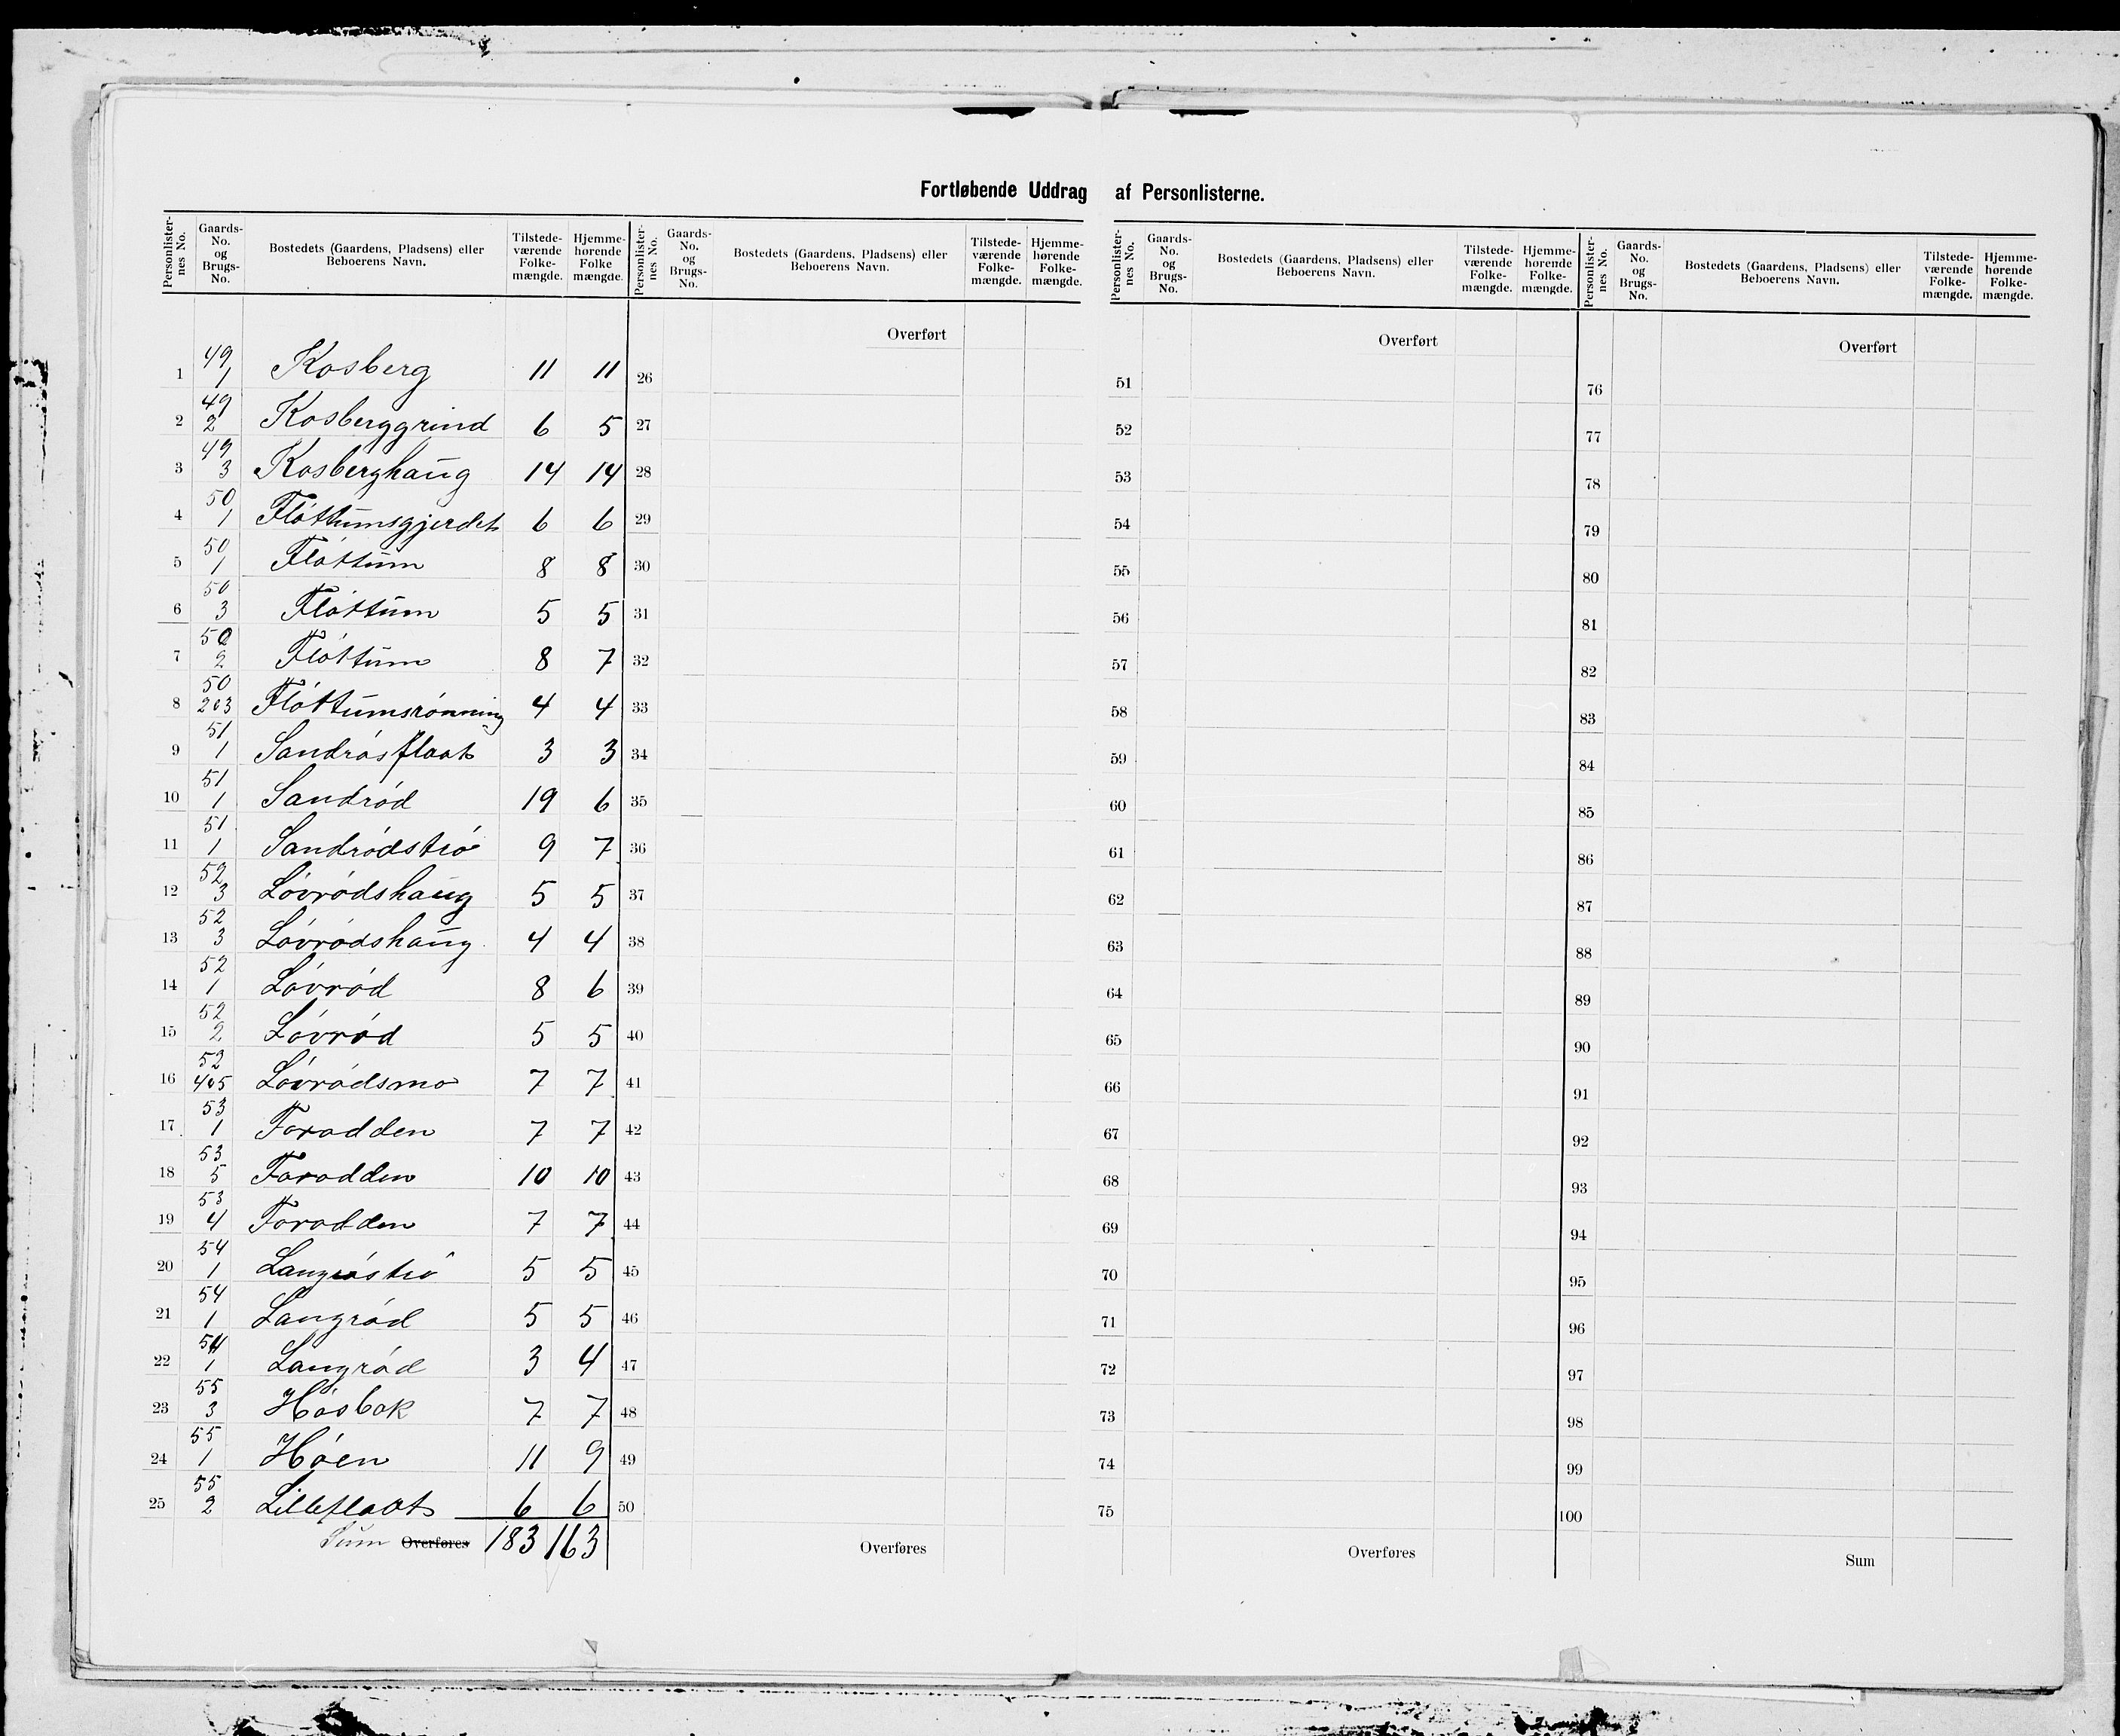 Fortløbende Uddrag af Personlisterne.
Personlister-nes No. | Gaards-No. og Brugs-No. | Bostedets (Gaardens, Pladsens) eller Beboerens Navn. | Tilstede-værende Folke-mængde. | Hjemme-hørende Folke mængde. | Personlister-nes No. | Gaards-No. og Brugs-No. | Bostedets (Gaardens, Pladsens) eller Beboerens Navn. | Tilstede-værende Folke-mængde. | Hjemme-hørende Folke-mængde. | Personlister-nes No. | Gaards-No. og Brugs-No. | Bostedets (Gaardens, Pladsens) eller Beboerens Navn. | Tilstede-værende Folke-mængde. | Hjemme-hørende Folke-mængde. | Personlister-nes No. | Gaards-No. og Brugs-No. | Bostedets (Gaardens, Pladsens) eller Beboerens Navn. | Tilstede-værende Folke-mængde. | Hjemme-hørende Folke-mængde.
Overført Overført Overført
1 49/1 Kosberg 11 11 26 51 76
2 49/2 Kosberggrind 6 5 27 52 77
3 49/3 Kosberghaug 14 14 28 53 78
4 50/1 Fløttumsgjerdet 6 6 29 54 79
5 50/1 Fløttum 8 8 30 55 80
6 50/3 Fløttum 5 5 31 56 81
7 50/2 Fløttum 8 7 32 57 82
8 50/2 o 3 Fløttumsrønning 4 4 33 58 83
9 51/1 Sandrøsflaat 3 3 34 59 84
10 51/1 Sandrød 19 6 35 60 85
11 51/1 Sandrødstrø 9 7 36 61 86
12 52/3 Løvrødshaug 5 5 37 62 87
13 52/3 Løvrødshaug 4 4 38 63 88
14 52/1 Løvrød 8 6 39 64 89
15 52/2 Løvrød 5 5 40 65 90
16 52/4 o 5 Løvrødsmo 7 7 41 66 91
17 53/1 Forodden 7 7 42 67 92
18 53/5 Forodden 10 10 43 68 93
19 53/4 Forodden 7 7 44 69 94
20 54/1 Langrøstrø 5 5 45 70 95
21 54/1 Langrød 5 5 46 71 96
22 54/1 Langrød 3 4 47 72 97
23 55/3 Høsbak 7 7 48 73 98
24 55/1 Høen 11 9 49 74 99
25 55/2 Lilleflaat 6 6 50 75 100
Sum Overføres 183 163 Overføres Overføres Sum